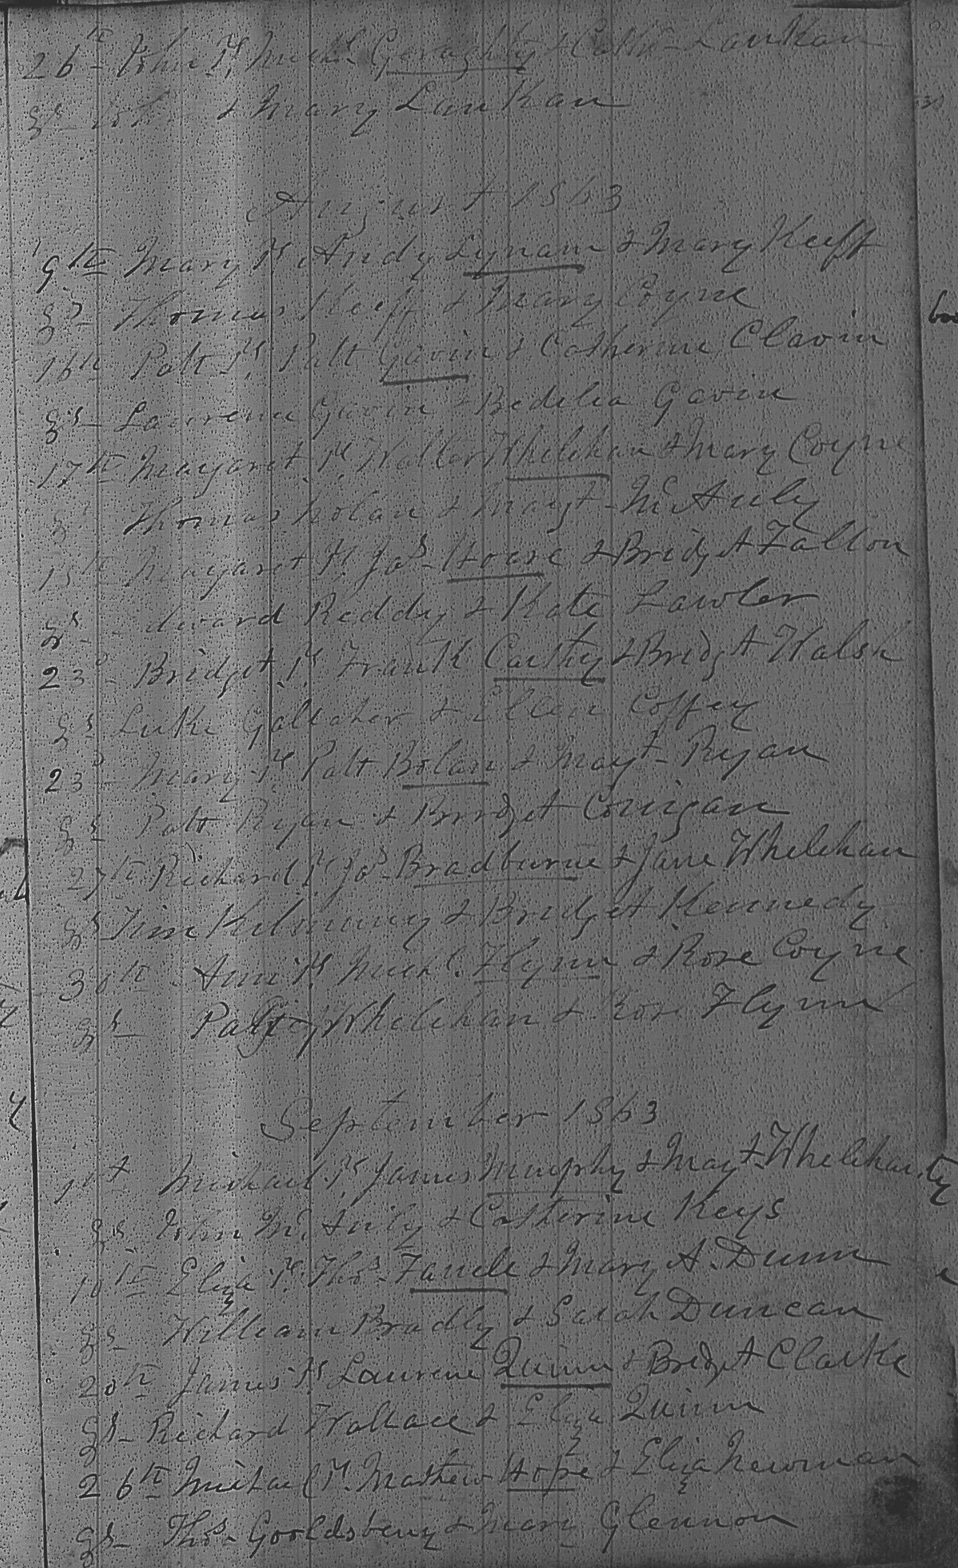 26th Mich. Lanthan
SS Mary Lanthan
August 1863
9th Mary K Andy Lynam & Mary Keiff
SS Thomas Keiff & Mary Coyne
16th Patt K Patt Gavin & Catherine Clavin
SS Laurence Gavin & Bedelia Gavin
17th Margaret K Walter Whelehan & Mary Coyne
SS Thomas Nolan & Margt McAuley
Margaret K Jas. & Bridgt Fallon
SS Edward Reddy & Kate Lawler
23 Bridget K Frank Carthy & Bridgt Walsh
SS Luke Gallaher & Coffey
23 Mary K Patt Bolan & Margt Ryan
SS Patt Ryan & Bridget Corrigan
Richard K Jas. Bradburne & Jane Whelehan
SS Kilmurray & Bridget Kennedy
30th Anne K Mich. Flynn & Rose Coyne
SS Patt Whelehan & Rose Flynn
September 1863
1st Michael K James Murphy & Margt Whelehan
SS John McAuley & Catherine Keys
10th Eliza K Thos. Farrell & Mary A. Dunn
SS William Bradley & Sarah Duncan
20th James K Laurence Quinn & Bridgt Clarke
SS Richard Wallace & Eliza Quinn
26th Michael K Mathew Hope & Eliza Newman
SS Thos. Gooldsberry & Mary Glennon